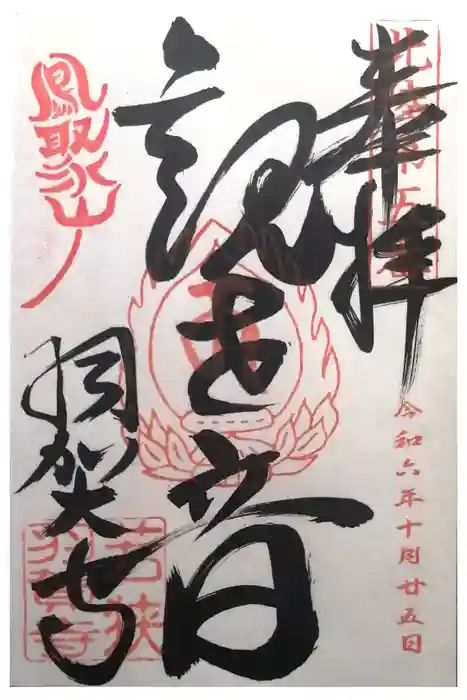 北陸第五番
奉拝
令和六年十月廿五日
観世音
鳳聚山
羽賀寺
若狭
羽賀寺